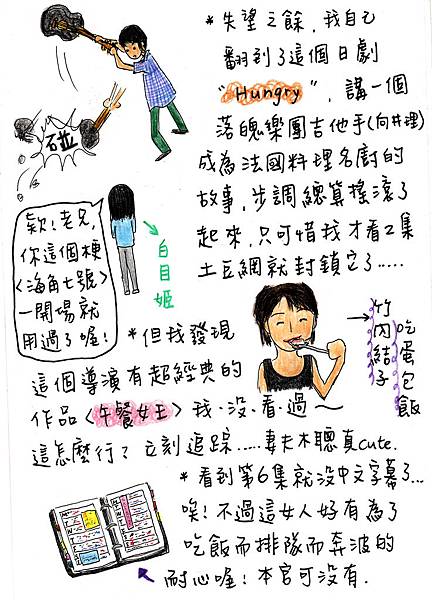 *失望之餘，我自己
翻到了這個日劇
"Hungry"，講一個
落魄樂團吉他手(向井理)
成為法國料理名廚的
故事，步調總算搖滾了
起來，只可惜我才看2集
土豆網就封鎖它了.....
碰
欸！老兄，
你這個梗
<海角七號>
一開場就
用過了喔！
白目姬
*但我發現
這個導演有超經典的
作品<午餐女王>我‧沒‧看‧過～
這怎麼行？立刻追踪.....妻夫木聰真cute.
竹內結子
吃蛋包飯
*看到第6集就沒中文字幕了...
唉！不過這女人好有為了
吃飯而排隊而奔波的
耐心喔！本宮可沒有.